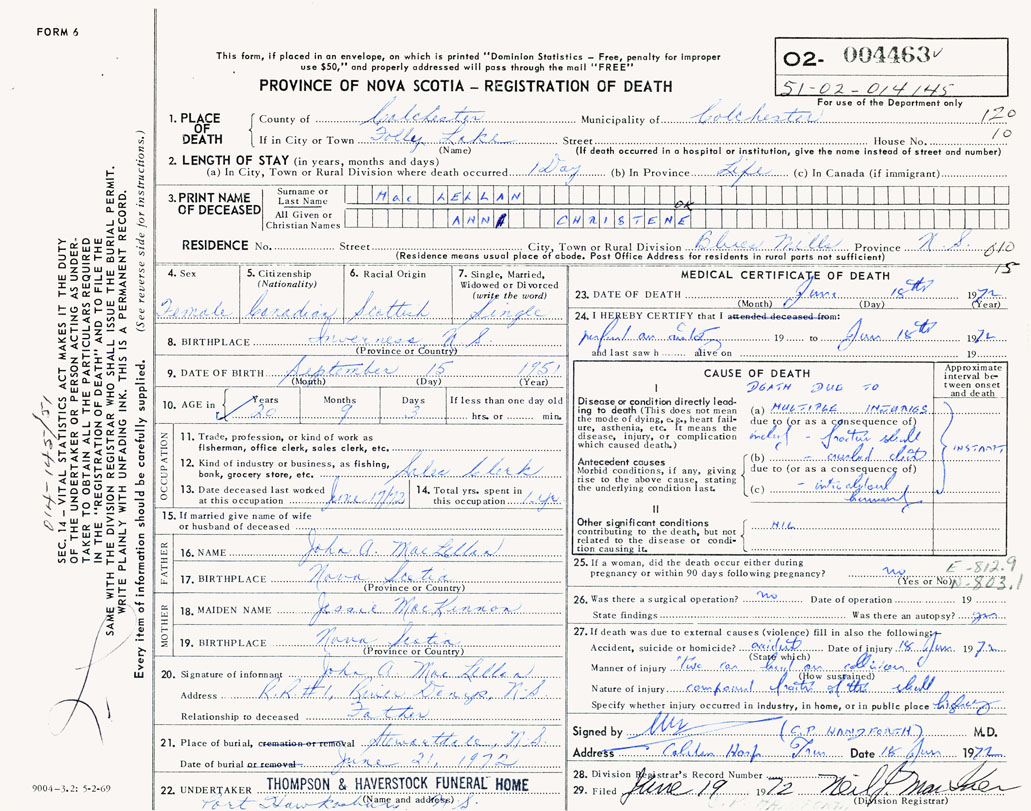 FORM 6
This form, if placed in an envelope, on which is printed "Dominion Statistics - Free, penalty for improper
use $50," and properly addressed will pass through the mail "FREE"
02- 004463
51-02-014145
For use of the Department only
PROVINCE OF NOVA SCOTIA – REGISTRATION OF DEATH
120
10
1. PLACE OF DEATH
County of Colchester Municipality of Colchester
If in City or Town Folly Lake Street House No.
(Name) (If death occurred in a hospital or institution, give the name instead of street and number)
2. LENGTH OF STAY (in years, months and days)
(a) In City, Town or Rural Division where death occurred 1 Day (b) In Province Life (c) In Canada (if immigrant)
3. PRINT NAME OF DECEASED
Surname or Last Name Mac LELLAN
OK
All Given or Christian Names ANN CHRISTENE
RESIDENCE No. Street City, Town or Rural Division Blues Mills Province N.S.
010
15
(Residence means usual place of abode. Post Office Address for residents in rural parts not sufficient)
4. Sex
Female
5. Citizenship
(Nationality)
Canadian
6. Racial Origin
Scottish
7. Single, Married,
Widowed or Divorced
(write the word)
Single
8. BIRTHPLACE Inverness, N.S.
(Province or Country)
9. DATE OF BIRTH September 15 1951
(Month) (Day) (Year)
10. AGE in
Years 20
Months 9
Days 3
If less than one day old
hrs. or min.
OCCUPATION
11. Trade, profession, or kind of work as
fisherman, office clerk, sales clerk, etc.
12. Kind of industry or business, as fishing,
bank, grocery store, etc. Sales Clerk
13. Date deceased last worked
at this occupation June 17/72
14. Total yrs. spent in
this occupation 1 yr
15. If married give name of wife
or husband of deceased
FATHER
16. NAME John A. MacLellan
17. BIRTHPLACE Nova Scotia
(Province or Country)
MOTHER
18. MAIDEN NAME Jessie MacKinnon
19. BIRTHPLACE Nova Scotia
(Province or Country)
20. Signature of informant John A. MacLellan
Address R.R #1, River Denys, N.S
Relationship to deceased Father
21. Place of burial, cremation or removal Stewartdale, N.S
Date of burial or removal June 21, 1972
THOMPSON & HAVERSTOCK FUNERAL HOME
22. UNDERTAKER
(Name and address)
Port Hawkesbury N.S.
MEDICAL CERTIFICATE OF DEATH
23. DATE OF DEATH June 18th 1972
(Month) (Day) (Year)
24. I HEREBY CERTIFY that I attended deceased from:
19 to June 18th 1972
and last saw h alive on 19
CAUSE OF DEATH
Approximate interval between onset and death
I DEATH DUE TO
Disease or condition directly leading to death (This does not mean the mode of dying, e.g., heart failure, asthenia, etc. It means the disease, injury, or complication which caused death.)
(a) MULTIPLE INJURIES
due to (or as a consequence of)
(b) - crushed chest
due to (or as a consequence of)
(c)
INSTANT
Antecedent causes
Morbid conditions, if any, giving rise to the above cause, stating the underlying condition last.
II
Other significant conditions contributing to the death, but not related to the disease or condition causing it.
NIL
25. If a woman, did the death occur either during
pregnancy or within 90 days following pregnancy? no
(Yes or No)
E-812.9
N-803.1
26. Was there a surgical operation? no Date of operation 19
State findings Was there an autopsy?
27. If death was due to external causes (violence) fill in also the following:
Accident, suicide or homicide? accident Date of injury 18 Jun 1972
(State which)
Manner of injury Two car head on collision
(How sustained)
Nature of injury compound fracture of the skull
Specify whether injury occurred in industry, in home, or in public place highway
Signed by (C.P. HANDFORTH) M.D.
Address Truro Date 18 Jun 1972
28. Division Registrar's Record Number
29. Filed June 19 1972
(Division Registrar)
014-145/51
SEC. 14 – VITAL STATISTICS ACT MAKES IT THE DUTY
OF THE UNDERTAKER OR PERSON ACTING AS UNDER-
TAKER TO OBTAIN ALL THE PARTICULARS REQUIRED
IN THE "REGISTRATION OF DEATH" AND TO FILE THE
SAME WITH THE DIVISION REGISTRAR WHO SHALL ISSUE THE BURIAL PERMIT.
WRITE PLAINLY WITH UNFADING INK. THIS IS A PERMANENT RECORD.
Every item of information should be carefully supplied. (See reverse side for instructions.)
9004-3.2: 5-2-69